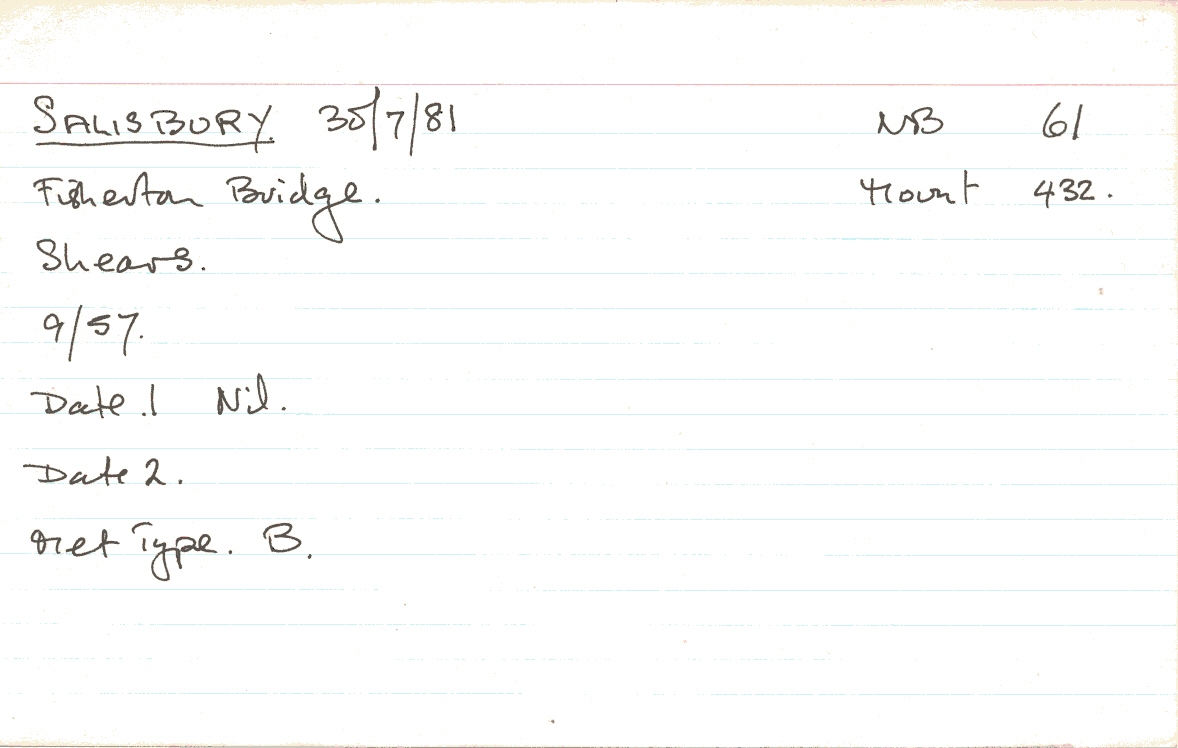 SALISBURY 30/7/81 NB 61
Fisherton Bridge. Mount 432.
Shears.
9/57.
Date.1 Nil.
Date 2.
Met Type. B.